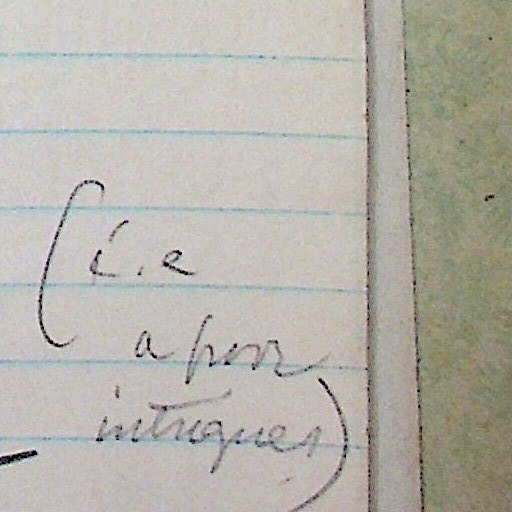 (i.e
a poor
intriguer)